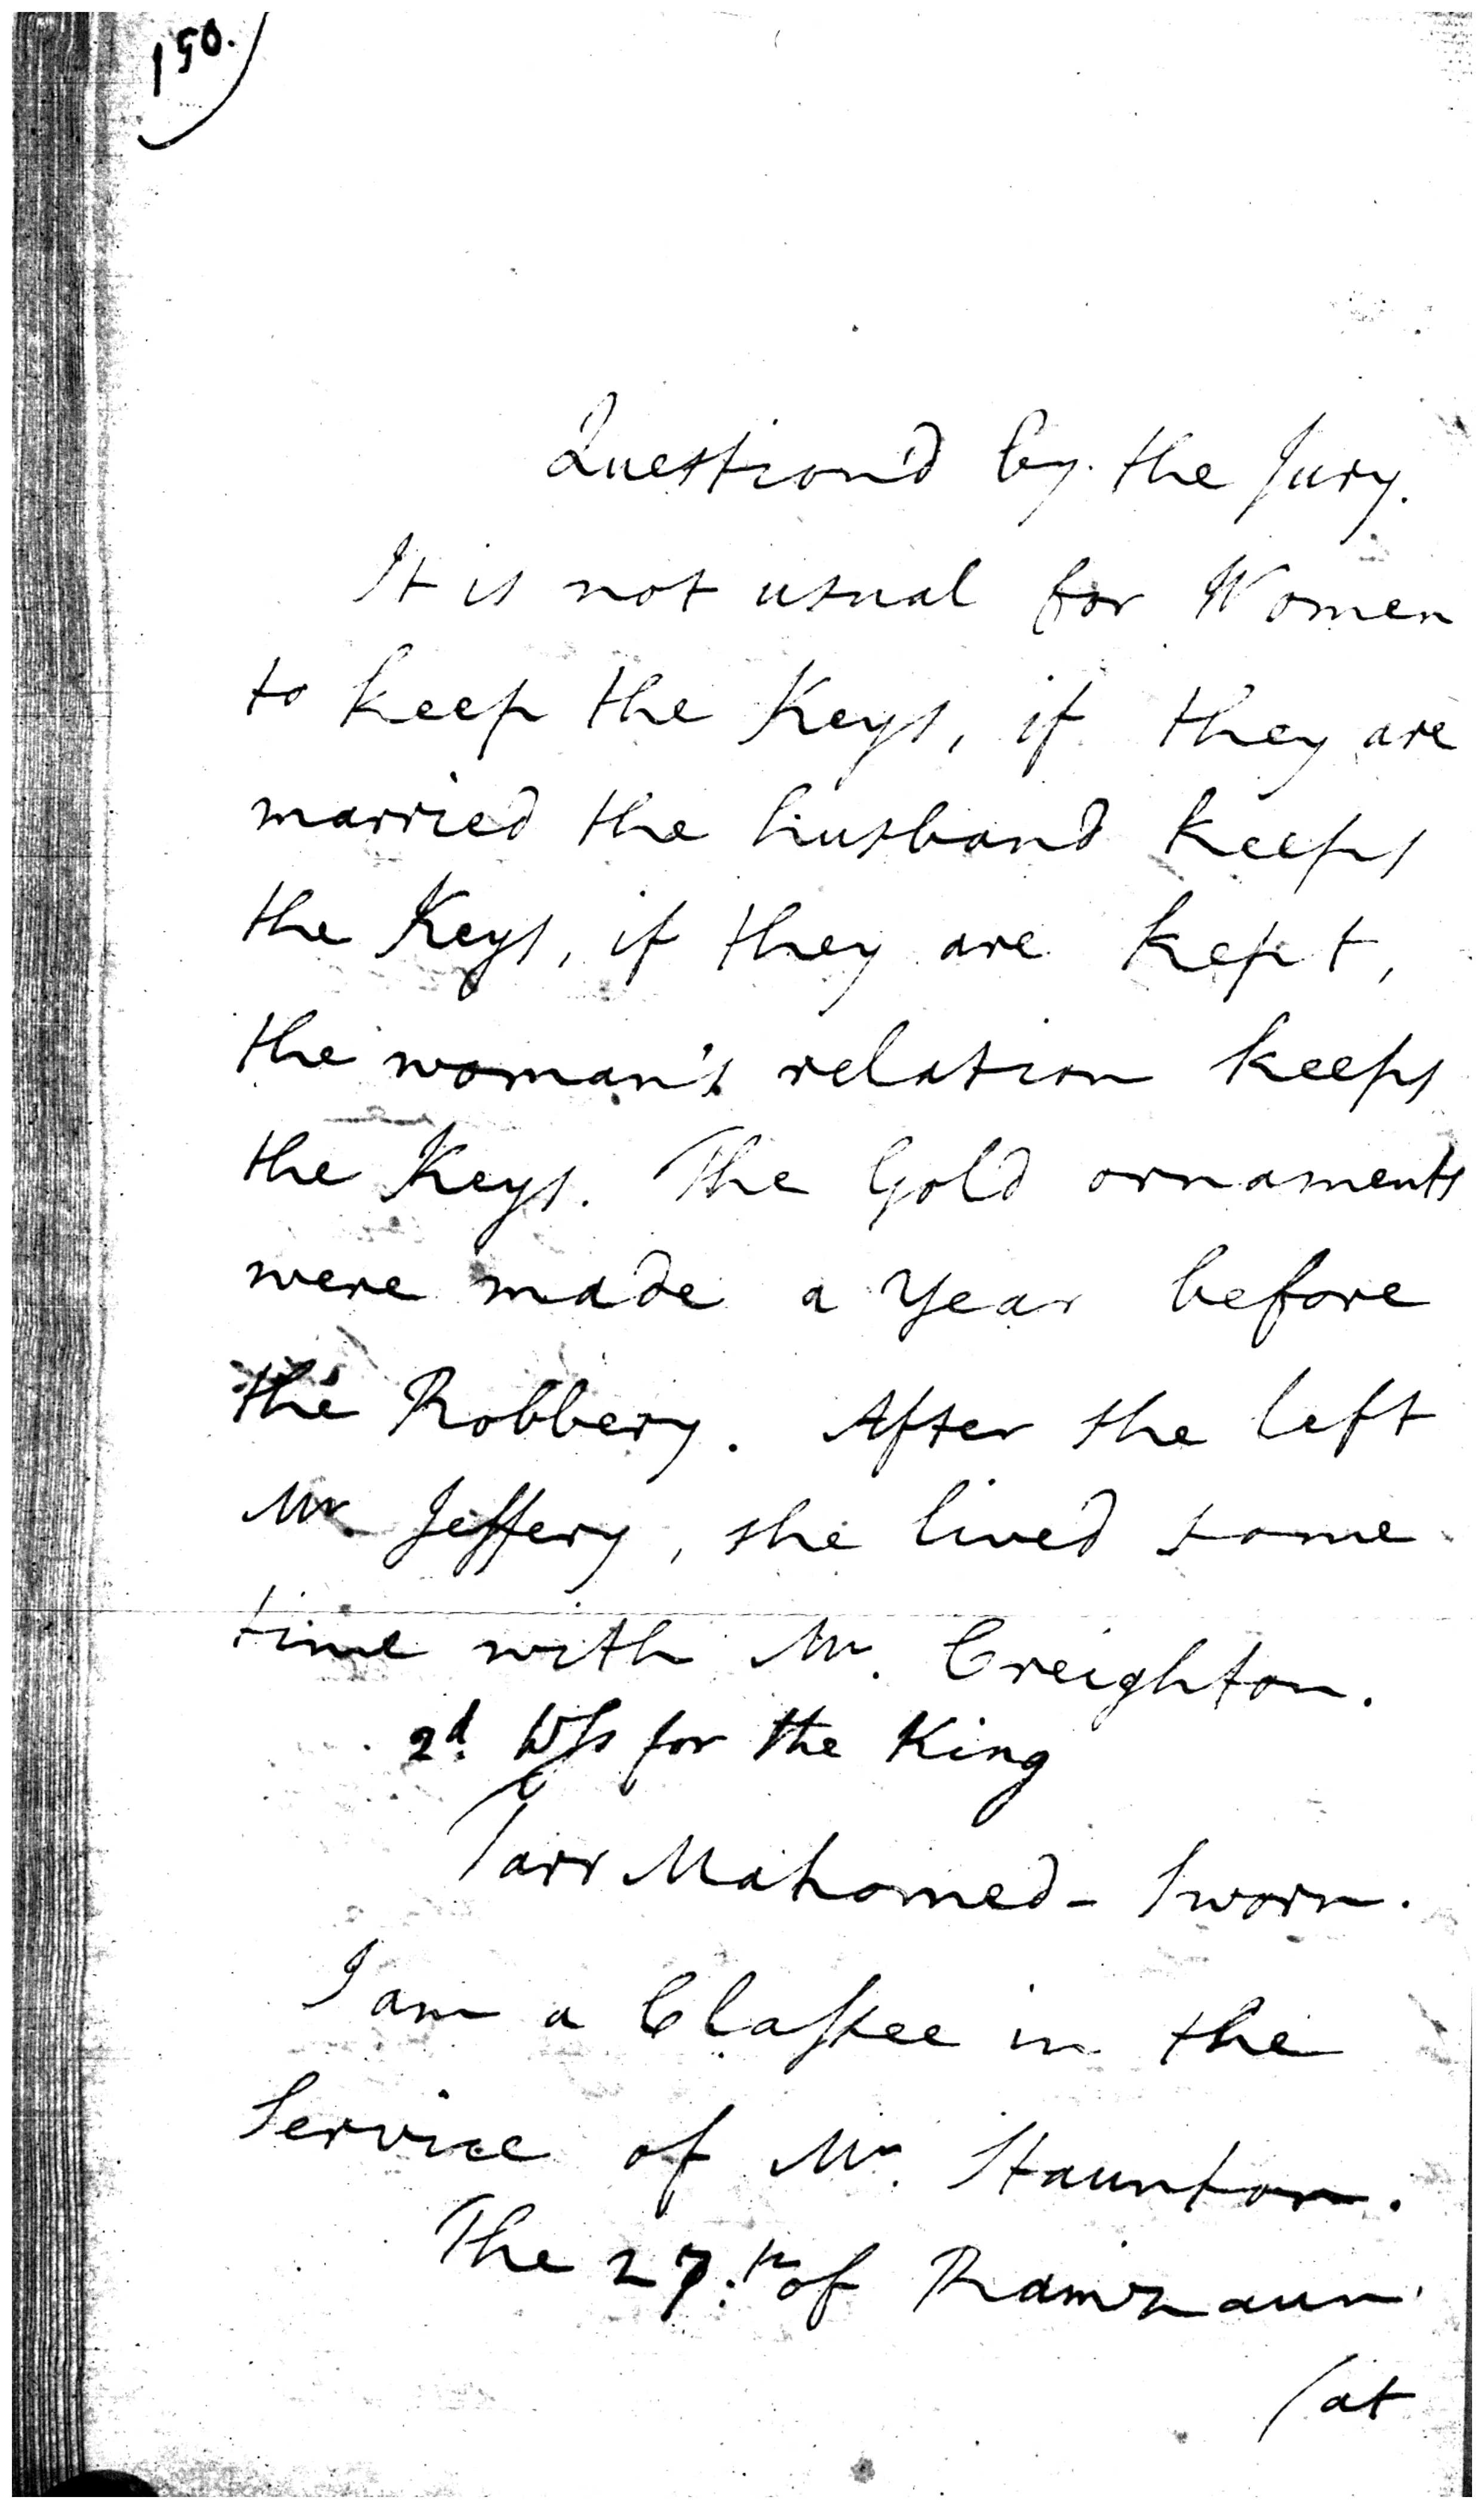 150.
Question'd by the Jury.
It is not usual for Women
to keep the Keys, if they are
married the husband keeps
the Keys, if they are kept,
the woman's relation keeps
the Keys. The Gold ornaments
were made a Year before
the Robbery. After she left
Mr. Jeffery, she lived some
time with Mr. Creighton.
2d. Wss for the King
Tarr Mahomed - Sworn.
I am a Classee in the
Service of Mr. Staunton.
The 27th of Ramzaun
(at